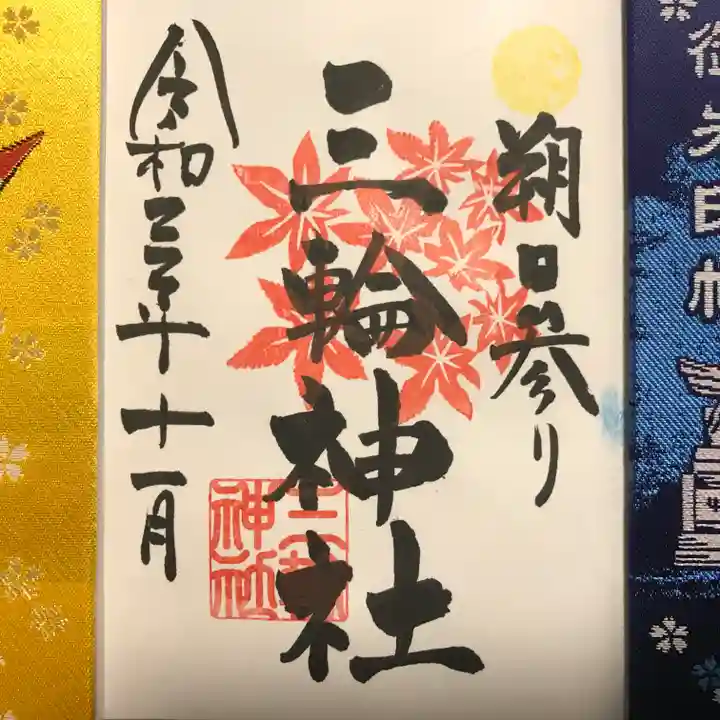 御朱印帳
朔日参り
三輪神社
令和三年十一月
三輪
神社